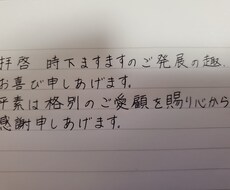 拝啓 時下ますますのご発展の趣、
お喜び申しあげます。
平素は格別のご愛顧を賜り心から
感謝申しあげます。